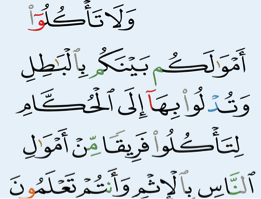 وَلَا تَأْكُلُوٓا۟
أَمْوَٰلَكُم بَيْنَكُم بِٱلْبَـٰطِلِ
وَتُدْلُوا۟ بِهَآ إِلَى ٱلْحُكَّامِ
لِتَأْكُلُوا۟ فَرِيقًا مِّنْ أَمْوَٰلِ
ٱلنَّاسِ بِٱلْإِثْمِ وَأَنتُمْ تَعْلَمُونَ